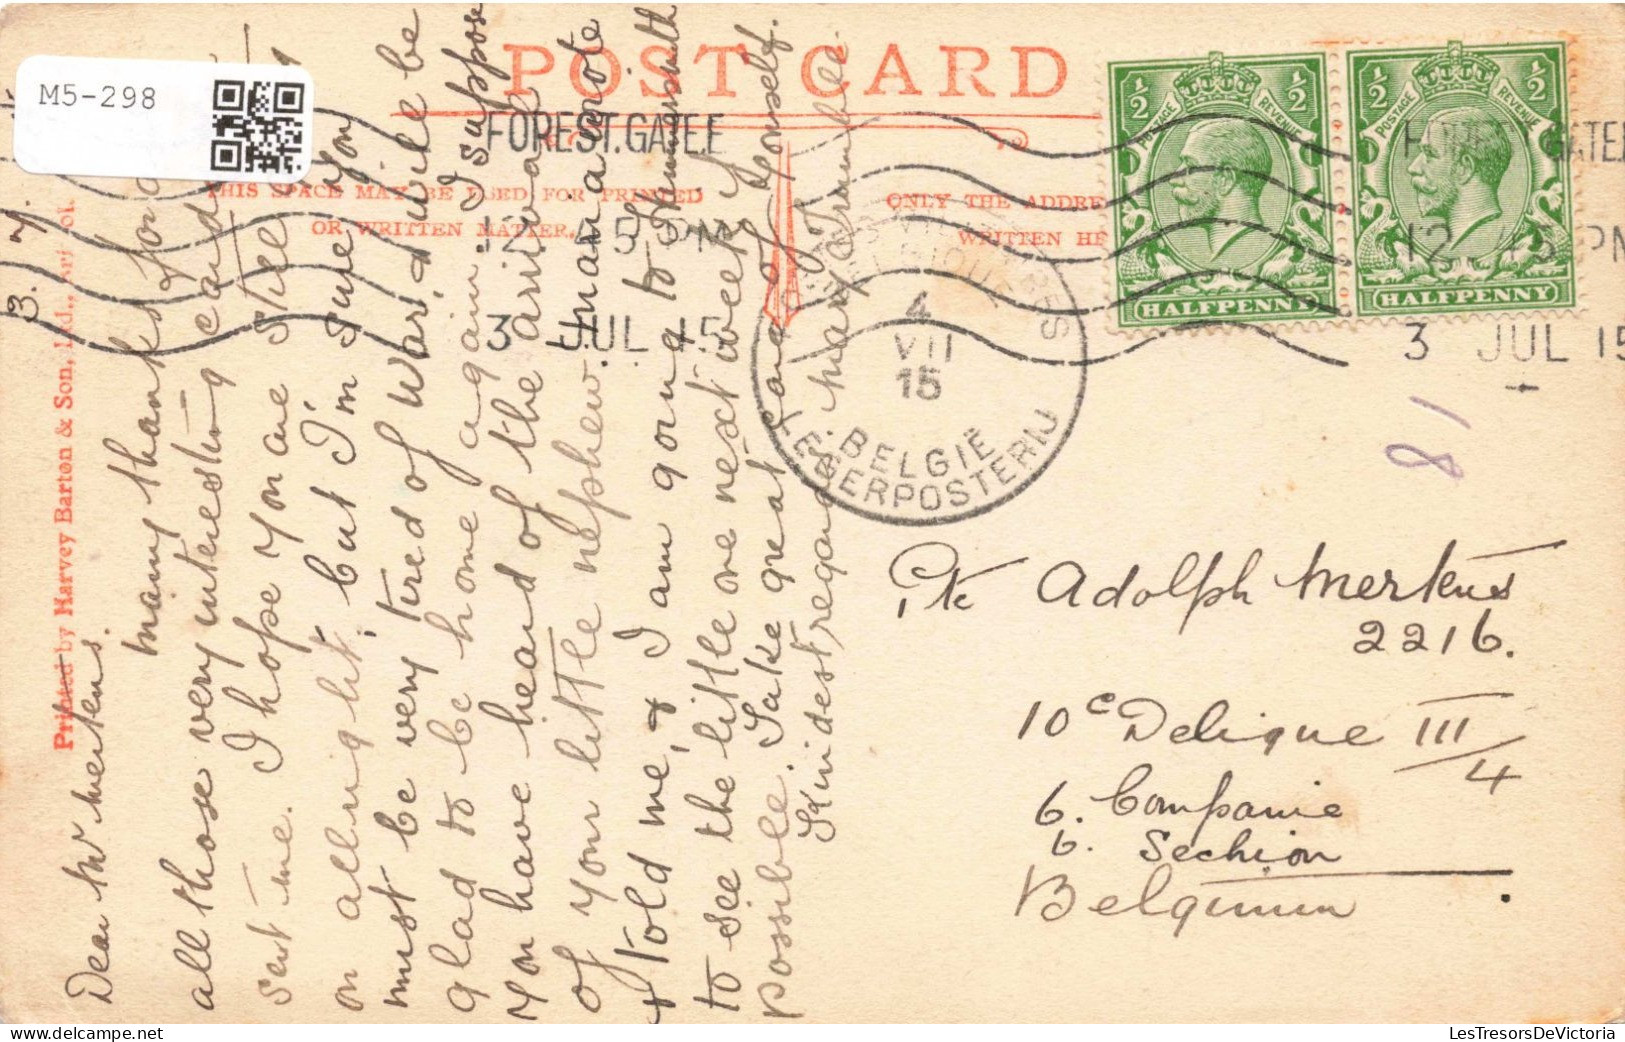 M5-298
POST CARD
THIS SPACE MAY BE USED FOR PRINTED
OR WRITTEN MATTER.
ONLY THE ADDRE
WRITTEN HE
FOREST.GATE.E
12.45 PM
3 JUL 15
GATE.E
12.45 PM
3 JUL 15
POSTAGE REVENUE
½ ½
HALFPENNY
POSTAGE REVENUE
½ ½
HALFPENNY
4
VII
15
BELGIË
LEGERPOSTERIJ
81
Printed by Harvey Barton & Son, Ltd.,
3. 7.
Dear Mr Mertens.
Many thanks for
all those very interesting card you
sent me. I hope you are still
on allright, but I'm sure you
must be very tired of war, & will be
glad to be home again. I suppose
you have heard of the arrival
of your little nephew. Iman a wrote
& told me, & I am going to
to see the little one next week if
possible. Take great care of yourself.
Kindest regards.
Adolph Mertens
2216.
10e Deligque III/4
6. Companie
6. Sechion
Belgium
LesTresorsDeVictoria